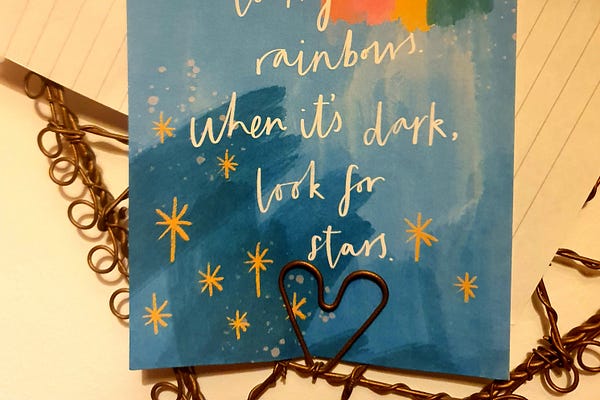 rainbows.
When it's dark,
look for
stars.